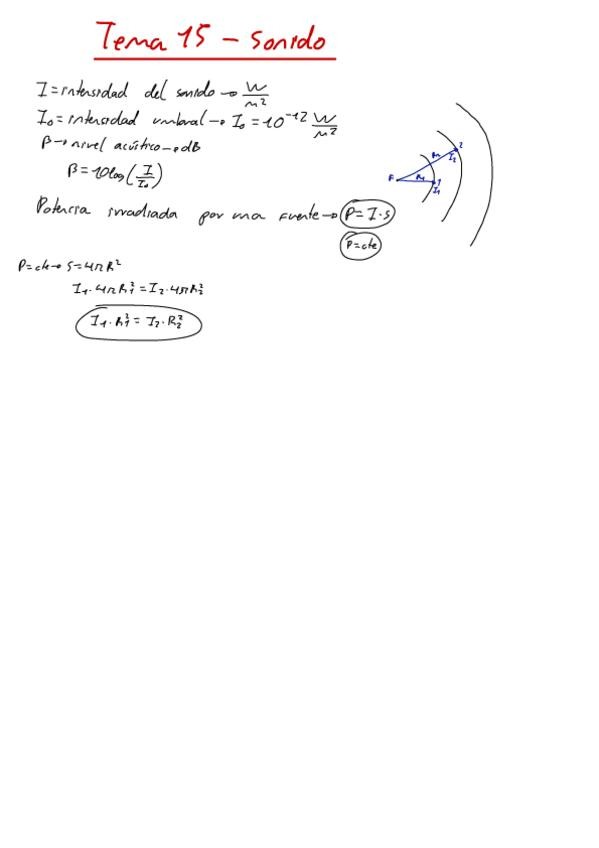 Tema 15 - Sonido
I = intensidad del sonido → W/m²
I₀ = intensidad umbral → I₀ = 10⁻¹² W/m²
β → nivel acústico → dB
β = 10 log (I/I₀)
Potencia irradiada por una fuente → P = I · S
P = cte
F R₁ 1 I₁ 2 I₂
P = cte → S = 4πR²
I₁ · 4πR₁² = I₂ · 4πR₂²
I₁ · R₁² = I₂ · R₂²